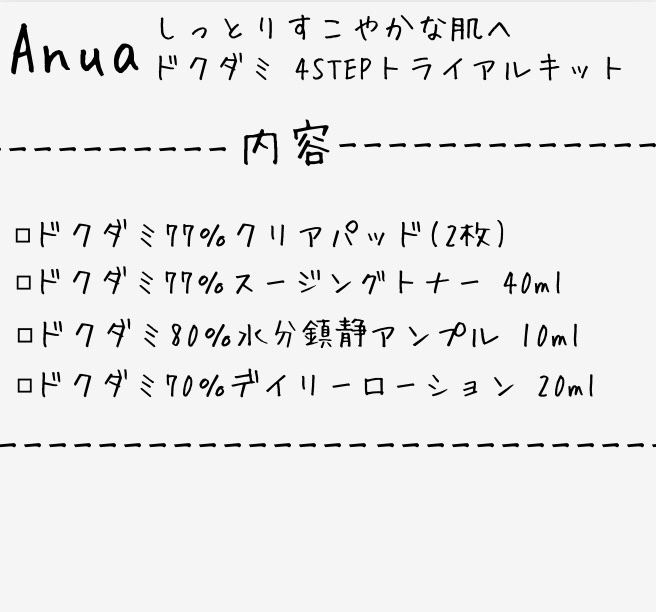 Anua しっとりすこやかな肌へ
ドクダミ 4STEPトライアルキット
内容
□ドクダミ77%クリアパッド(2枚)
□ドクダミ77%スージングトナー 40ml
□ドクダミ80%水分鎮静アンプル 10ml
□ドクダミ70%デイリーローション 20ml